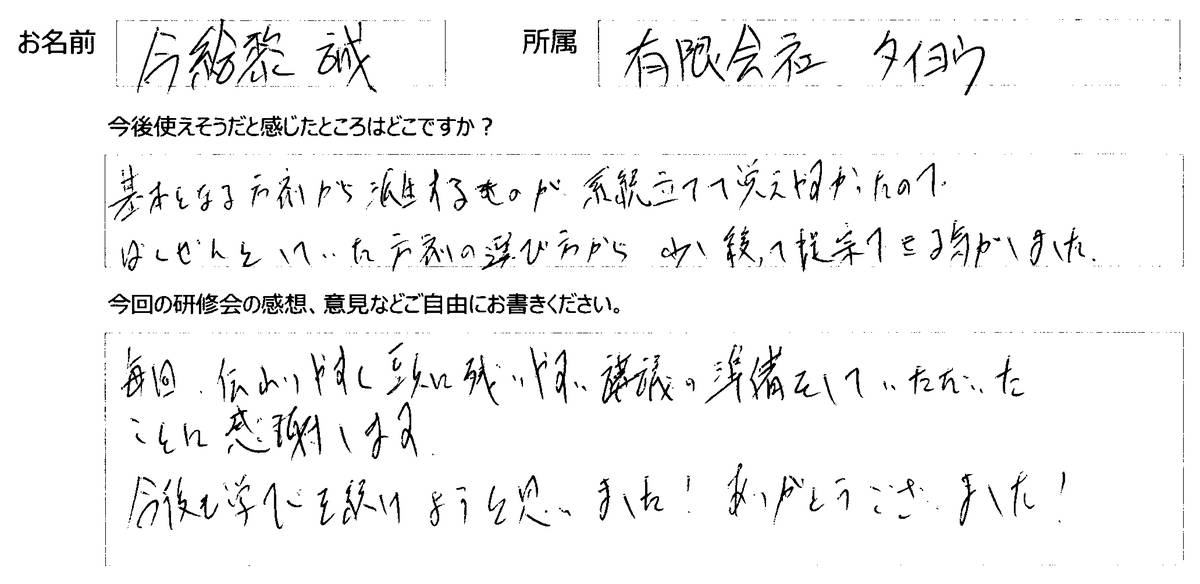 お名前 今給黎 誠 所属 有限会社 タイヨウ
今後使えそうだと感じたところはどこですか?
基本となる方剤から派生するものが系統立てて覚えやすかったので
ばくぜんとしていた方剤の選び方から 少し絞って提案できる気がしました。
今回の研修会の感想、意見などご自由にお書きください。
毎回、伝わりやすく頭に残りやすい講議の準備をしていただいた
ことに感謝します。
今後も学びを続けようと思いました! ありがとうございました!